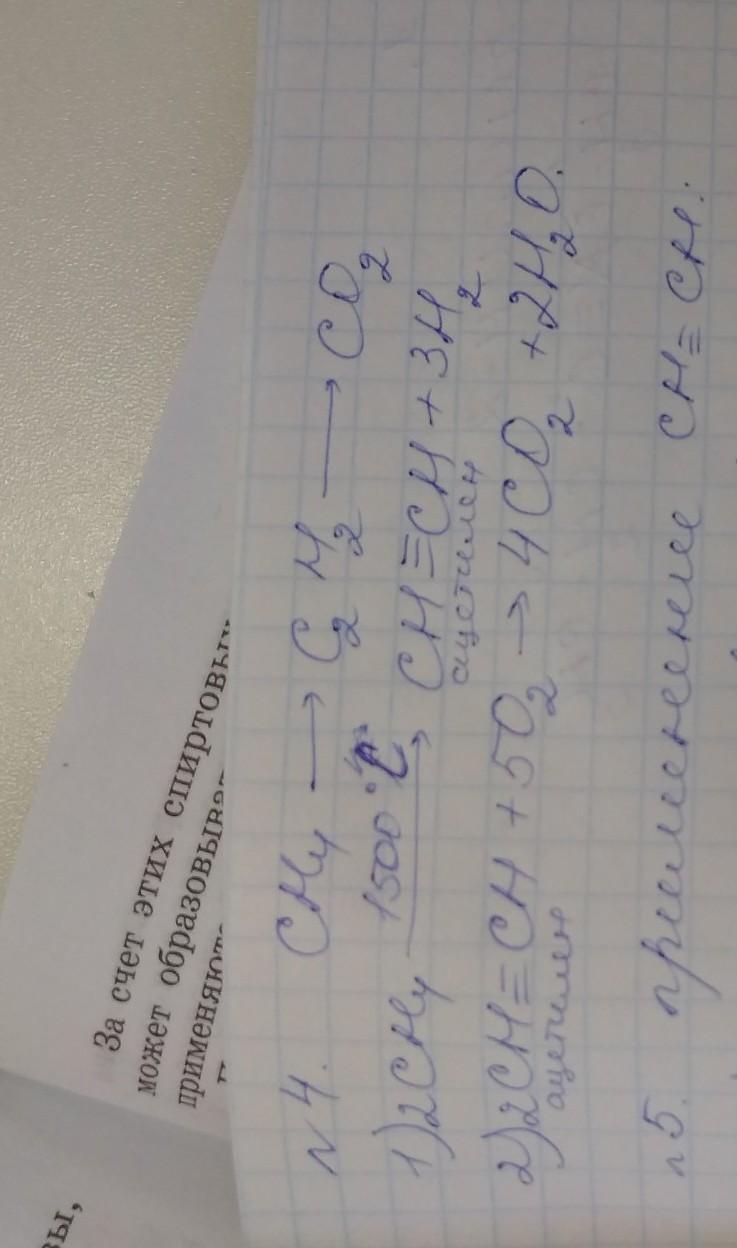 вы,
За счет этих спиртовых
может образовыва
применяют
N 4. CH₄ → C₂H₂ → CO₂
1) 2CH₄ 1500 °C → CH≡CH + 3H₂
ацетилен
2) 2CH≡CH + 5O₂ → 4CO₂ + 2H₂O.
ацетилен
N 5. применение CH≡CH: